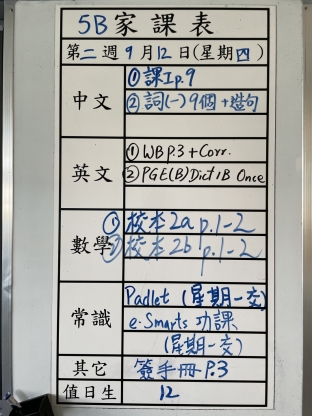 5B 家課表
第二週 9月12日(星期四)
中文
①課Ip.9
②詞(一)9個+造句
英文
①WB P.3 + Corr.
②PGE(B) Dict 1B Once
數學
①校本2a p.1-2
②校本2b p.1-2
常識
Padlet (星期一交)
e-Smarts 功課
(星期一交)
其它 簽手冊 P.3
值日生 12